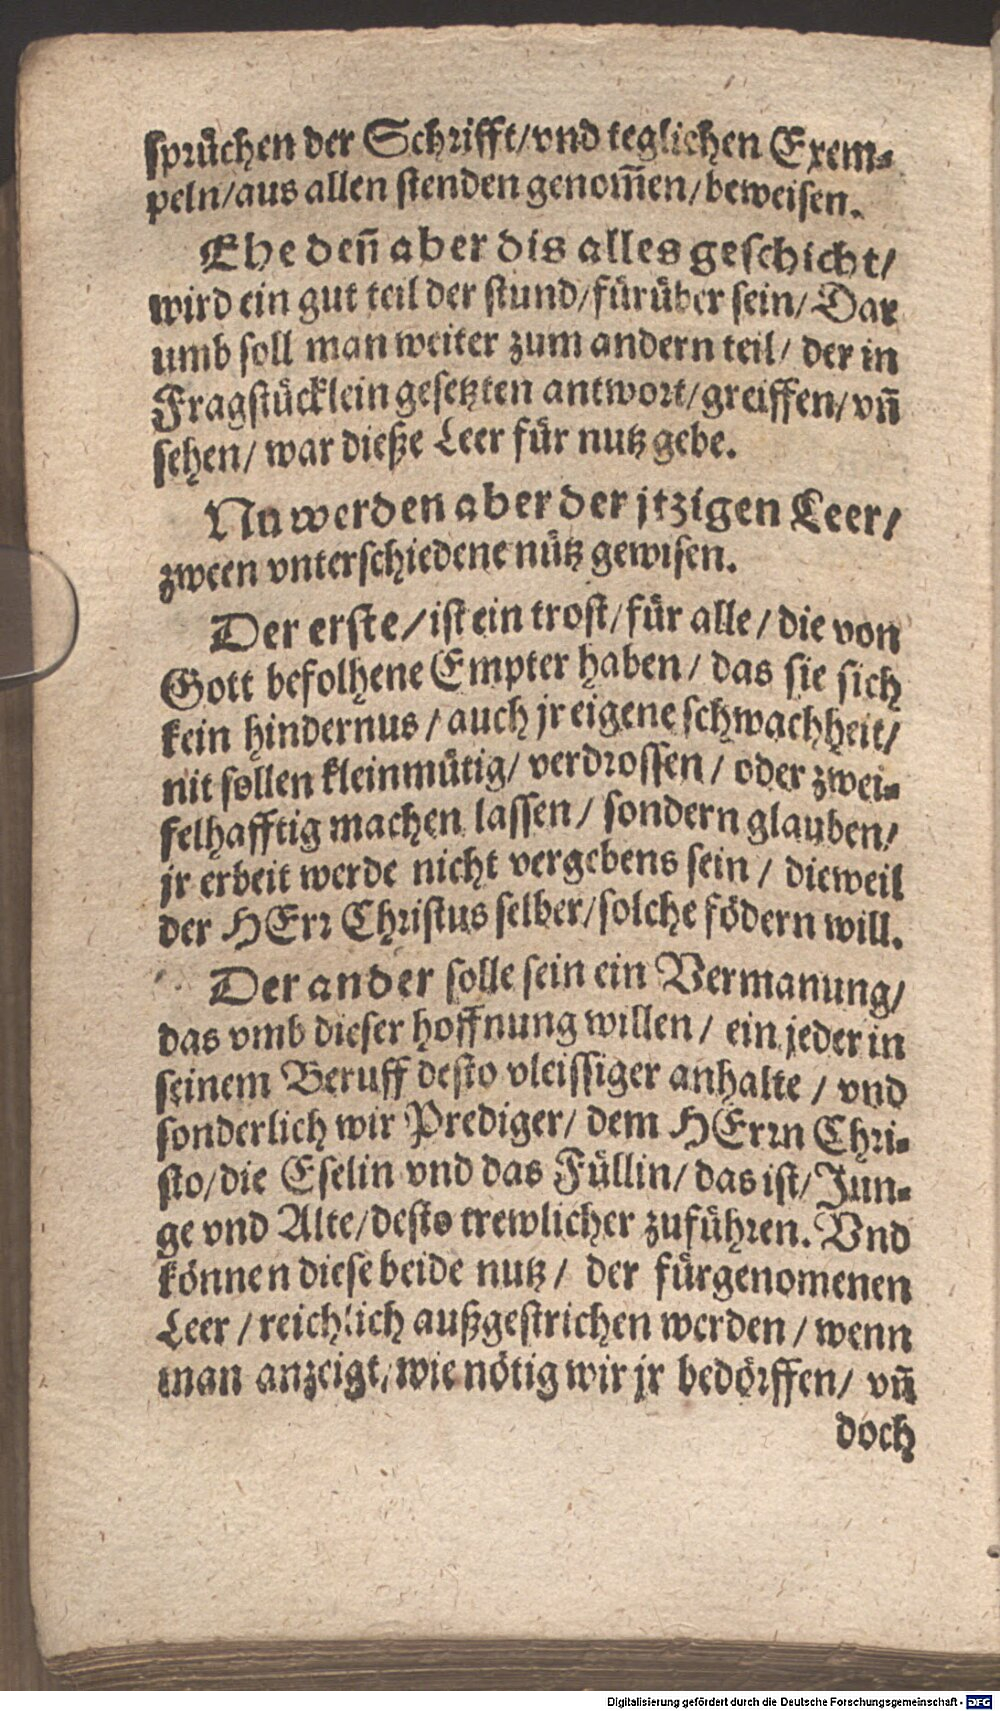 sprüchen der Schrifft/vnd teglichen Exem⸗
peln/aus allen stenden genom̃en/beweisen.
Ehe deñ aber dis alles geschicht/
wird ein gut teil der stund/fürüber sein/Dar
umb soll man weiter zum andern teil/ der in
Fragstücklein gesetzten antwort/greiffen/vñ
sehen/ war dieße Leer für nutz gebe.
Nu werden aber der jtzigen Leer/
zween vnterschiedene nütz gewisen.
Der erste/ist ein trost/für alle/die von
Gott befolhene Empter haben/ das sie sich
kein hindernus/auch jr eigene schwachheit/
nit sollen kleinmütig/ verdrossen/ oder zwei⸗
felhafftig machen lassen/ sondern glauben/
jr erbeit werde nicht vergebens sein/ dieweil
der HErr Christus selber/solche födern will.
Der ander solle sein ein Vermanung/
das vmb dieser hoffnung willen/ ein jeder in
seinem Beruff desto vleissiger anhalte/ vnd
sonderlich wir Prediger/ dem HErrn Chri⸗
sto/die Eselin vnd das Füllin/ das ist/Jun⸗
ge vnd Alte/desto trewlicher zuführen. Vnd
können diese beide nutz/ der fürgenomenen
Leer/reichlich außgestrichen werden/wenn
man anzeigt/wie nötig wir jr bedörffen/ vñ
doch
Digitalisierung gefördert durch die Deutsche Forschungsgemeinschaft - DFG